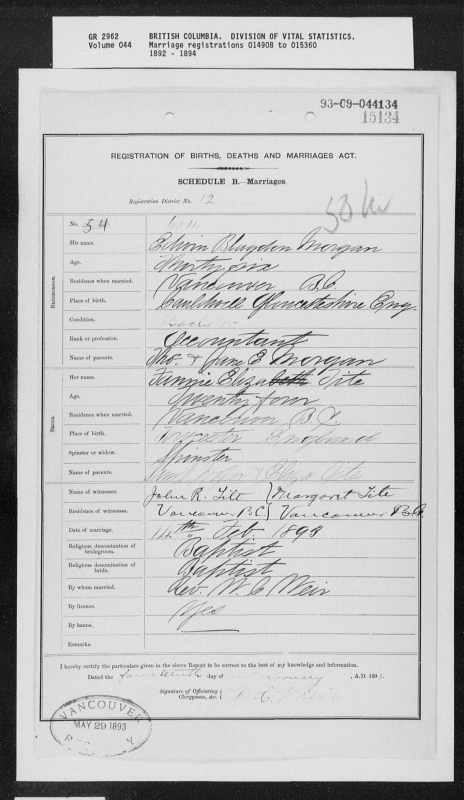 GR 2962 BRITISH COLUMBIA. DIVISION OF VITAL STATISTICS.
Volume 044 Marriage registrations 014908 to 015360
1892 - 1894
93-09-044134
15134
REGISTRATION OF BIRTHS, DEATHS AND MARRIAGES ACT.
SCHEDULE B.—Marriages
Registration District No. 12
No. 54
His name. Edwin Blagdon Morgan
Age. Thirty six
Residence when married. Vancouver B.C.
Place of birth. Gloucestershire Eng.
Condition. Bachelor
Rank or profession. Accountant
Name of parents. Thos. & Jane E Morgan
Bridegroom.
Her name. Fannie Elizabeth Tite
Age. Twenty four
Residence when married. Vancouver B.C.
Place of birth. England
Spinster or widow. Spinster
Name of parents. Eliza Tite
Bride.
Name of witnesses. John R. Tite } Margaret Tite
Residence of witnesses. Vancouver BC } Vancouver B.C.
Date of marriage. 14th Feb. 1893
Religious denomination of bridegroom. Baptist
Religious denomination of bride. Baptist
By whom married. Rev. W. C. Weir
By licence. Yes
By banns.
Remarks.
I hereby certify the particulars given in the above Report to be correct to the best of my knowledge and information.
Dated the fourteenth day of February , A.D. 1893.
Signature of Officiating Clergyman, &c. W. C. Weir
VANCOUVER
MAY 29 1893